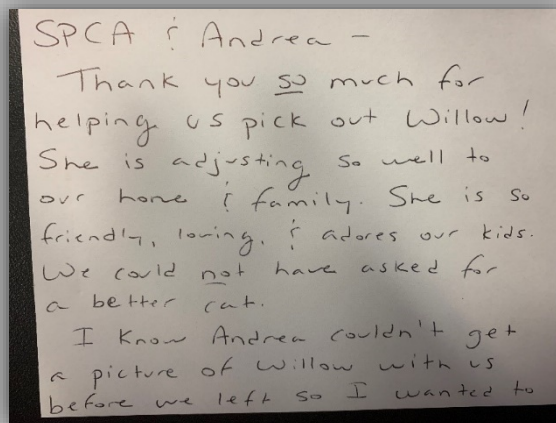 SPCA & Andrea -
Thank you so much for
helping us pick out Willow!
She is adjusting so well to
our home & family. She is so
friendly, loving, & adores our kids.
We could not have asked for
a better cat.
I know Andrea couldn't get
a picture of Willow with us
before we left so I wanted to